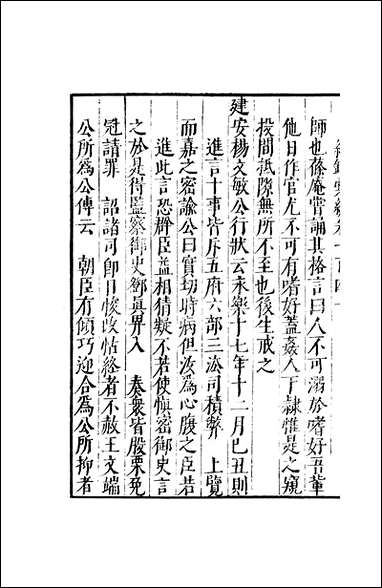 師也蓧庵嘗誦其格言曰人不可溺於嗜好吾輩
他日作官尤不可有嗜好蓋姦人下隷惟是之窺
投間抵隙無所不至也後生戒之
建安楊文敏公行狀云永樂十七年十二月巳丑則
進言十事皆斥五府六部三法司積弊　上覽
而嘉之密諭公曰實切時病但汝為心腹之臣若
進此言恐羣臣益相猜疑不若使慎密御史言
之於是得監察御史鄧真畀入　奏衆皆股栗免
冠請罪　詔諸司卽日悛改怙終者不赦王文端
公所為公傳云　朝臣有傾巧迎合為公所抑者